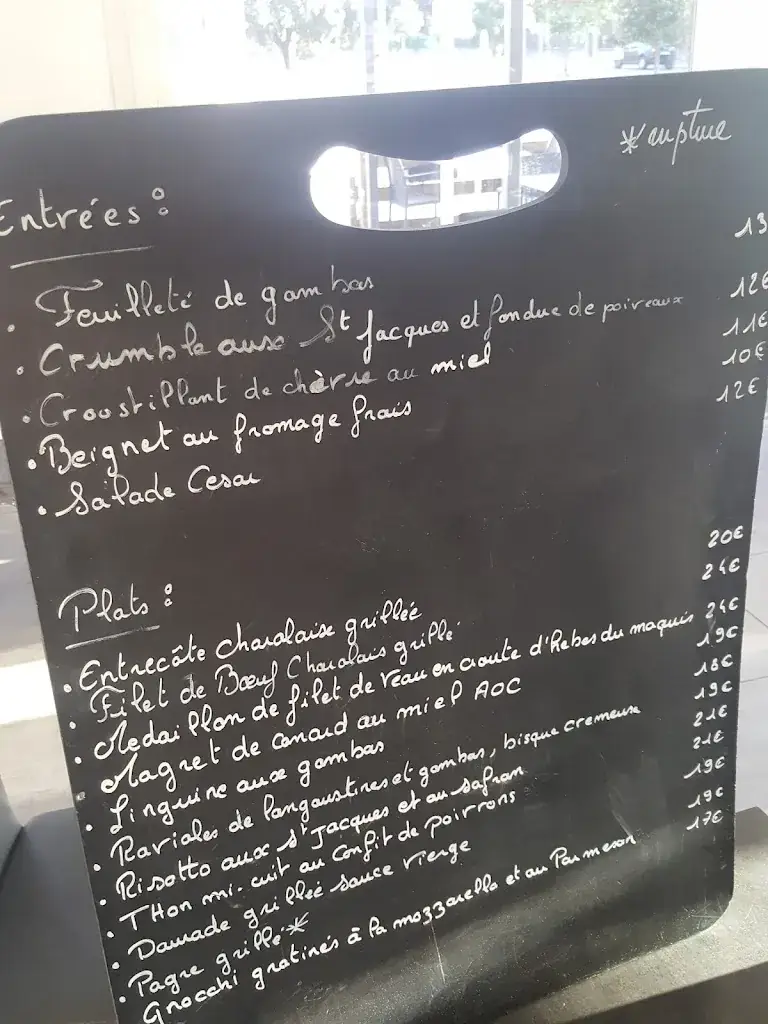 *rupture
Entrées :
• Feuilleté de gambas 13
• Crumble aux St Jacques et fondue de poireaux 12€
• Croustillant de chèvre au miel 11€
• Beignet au fromage frais 10€
• Salade Cesar 12€
Plats :
• Entrecôte charolaise grillée 20€
• Filet de Bœuf Charolais grillé 24€
• Medaillon de filet de veau en croute d'herbes du maquis 24€
• Magret de canard au miel AOC 19€
• Linguine aux gambas 18€
• Ravioles de langoustines et gambas, bisque cremeuse 19€
• Risotto aux St Jacques et au safran 21€
• THon mi-cuit au confit de poivrons 21€
• Daurade grillée sauce vierge 19€
• Pagre grillé* 19€
Gnocchi gratinés à la mozzarella et au Parmesan 17€